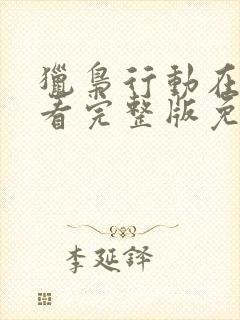 獵梟行動在
看完整版免
李延鐸